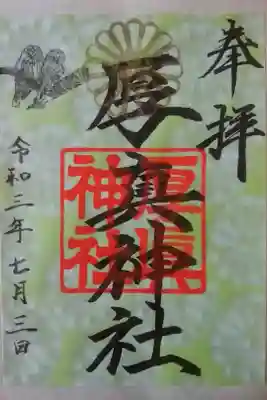 奉拝
厚真神社
厚真
神社
令和三年七月三日